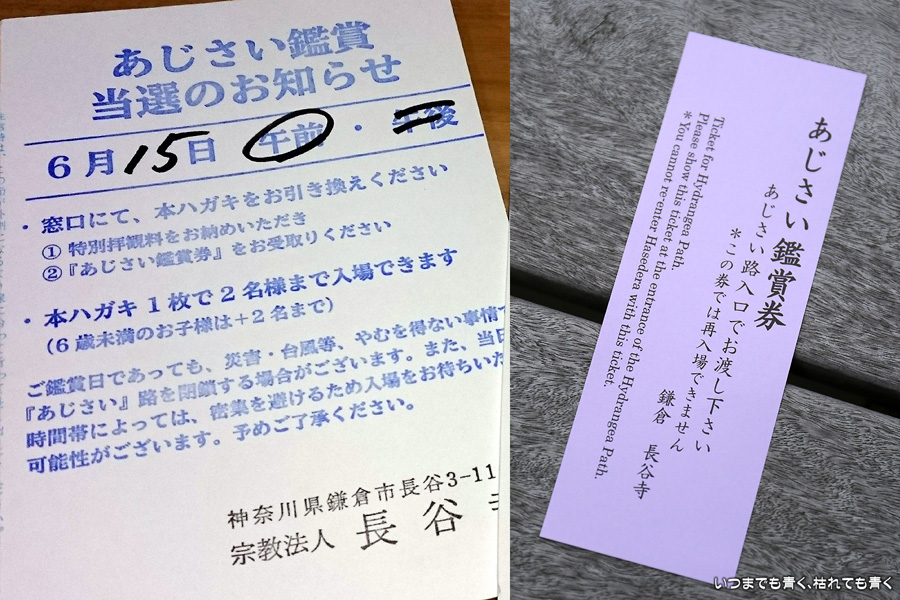 あじさい鑑賞
当選のお知らせ
6月15日 午前・午後
・窓口にて、本ハガキをお引き換えください
① 特別拝観料をお納めいただき
②『あじさい鑑賞券』をお受取りください
・本ハガキ1枚で2名様まで入場できます
(6歳未満のお子様は+2名まで)
ご鑑賞日であっても、災害・台風等、やむを得ない事情で
『あじさい』路を閉鎖する場合がございます。また、当日
時間帯によっては、密集を避けるため入場をお待ちいた
可能性がございます。予めご了承ください。
神奈川県鎌倉市長谷3-11
宗教法人 長谷
あじさい鑑賞券
あじさい路入口でお渡し下さい
*この券では再入場できません
鎌倉 長谷寺
Ticket for Hydrangea Path.
Please show this ticket at the entrance of the Hydrangea Path.
*You cannot re-enter Hasedera with this ticket.
いつまでも青く、枯れても青く